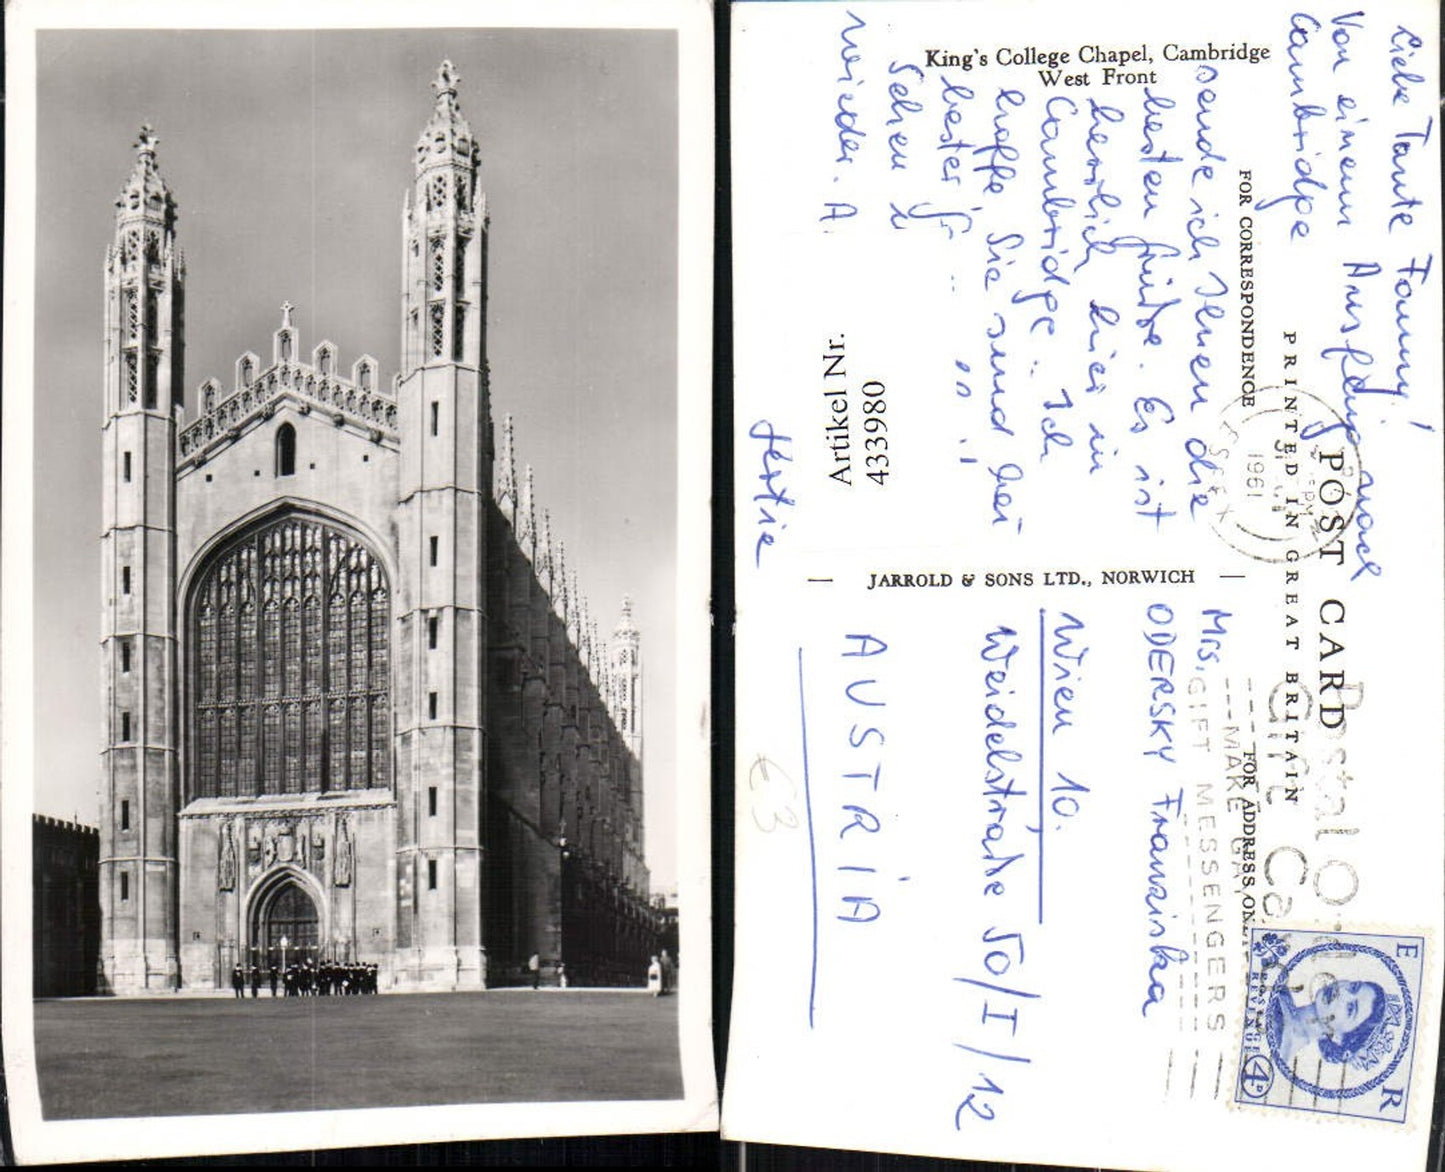 King's College Chapel, Cambridge
West Front
Liebe Tante Fanny!
Von einem Ausflug nach
Cambridge
sende ich Ihnen die
besten Grüße. Es ist
herrlich hier in
Cambridge. Ich
hoffe, Sie sind bei
bester
Sehen
wieder. A.
FOR CORRESPONDENCE
PRINTED IN GREAT BRITAIN
POST CARD
FOR ADDRESS ONLY
JARROLD & SONS LTD., NORWICH
Artikel Nr.
433980
1961
ESSEX
Postal Order
Gift Card
MAKE
GIFT MESSENGERS
Mrs.
ODERSKY Franziska
Wien 10.
Weidelstraße 50/I/12
AUSTRIA
€3
E R
POSTAGE
REVENUE
4D